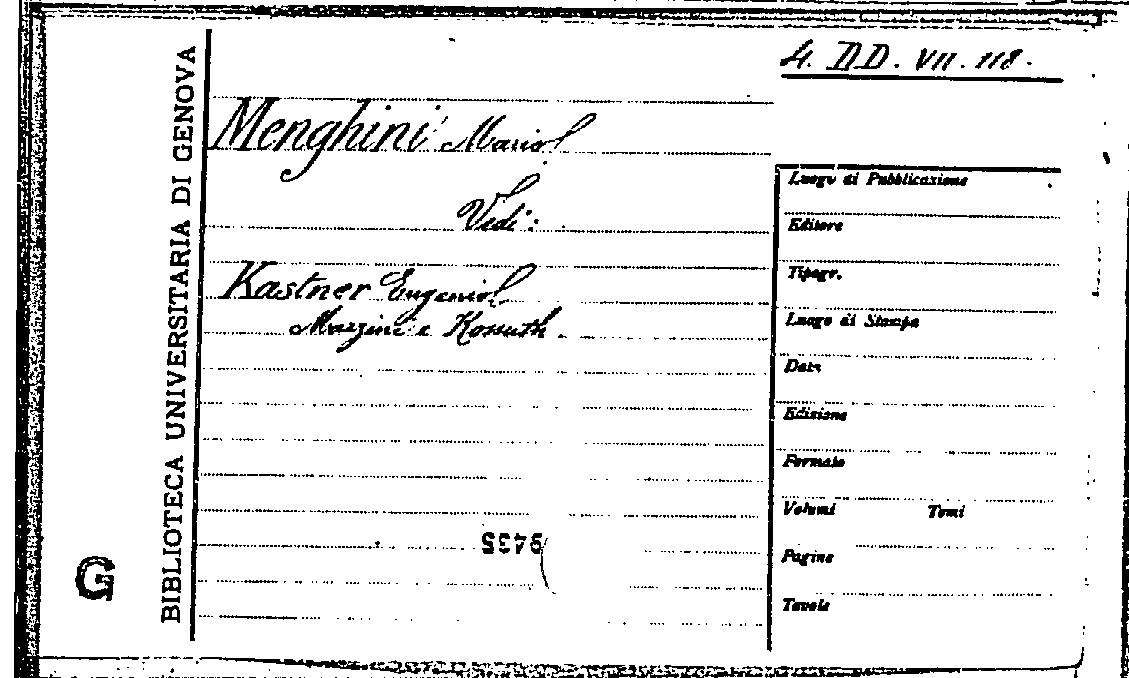 4. DD. VII. 118.
BIBLIOTECA UNIVERSITARIA DI GENOVA
G
Menghini Mario
Vedi:
Kastner Eugenio
Mazzini e Kossuth.
9435
Luogo di Pubblicazione
Editore
Tipogr.
Luogo di Stampa
Data
Edizione
Formato
Volumi Tomi
Pagine
Tavole